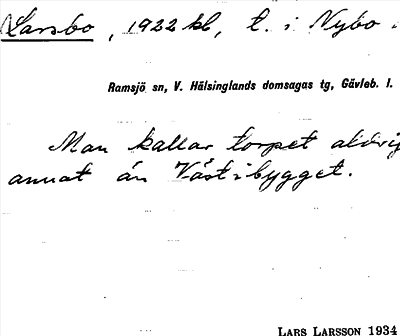 Larsbo, 1922 kl, t. i Nybo.
Ramsjö sn, V. Hälsinglands domsagas tg, Gävleb. l.
Man kallar torpet aldrig
annat än Västibygget.
LARS LARSSON 1934